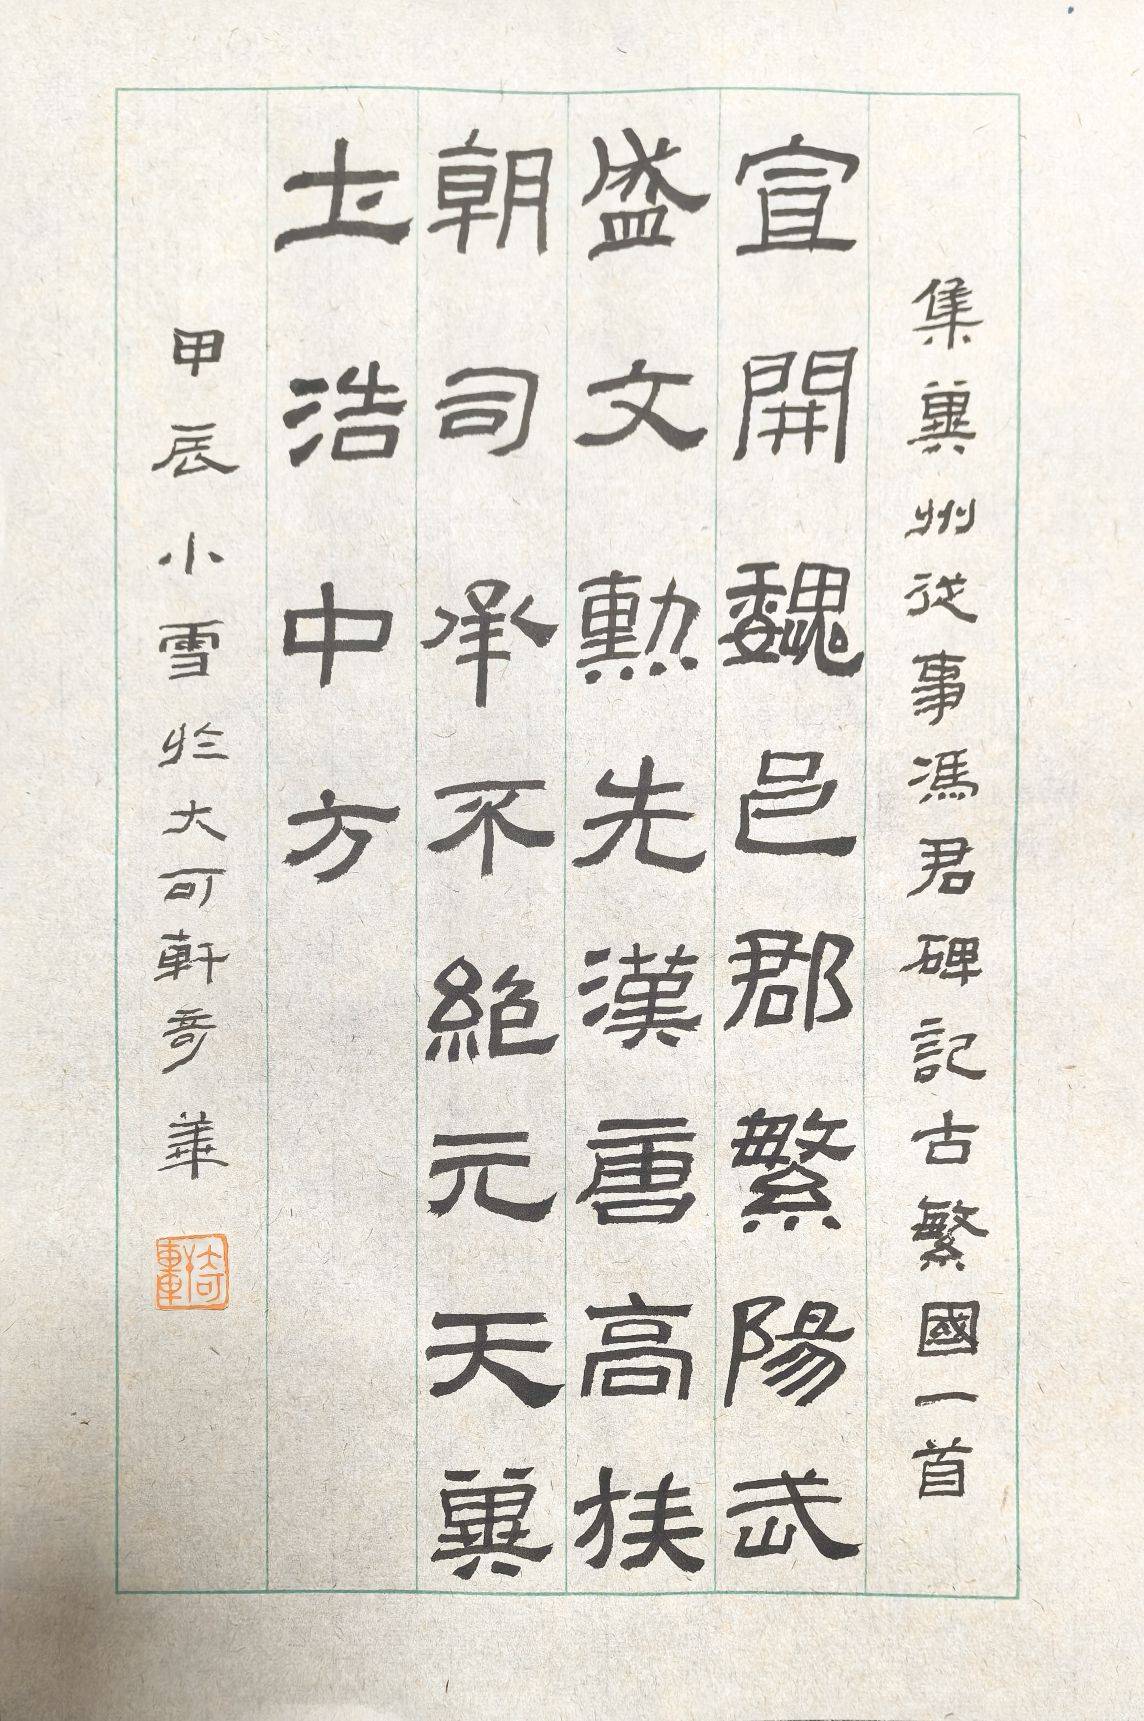 集冀州従事馮君碑記古繁國一首
宣開魏邑郡繁陽武
盛文勲先漢唐高扶
朝司承不絶元天冀
土浩中方
甲辰小雪於大可軒奇華